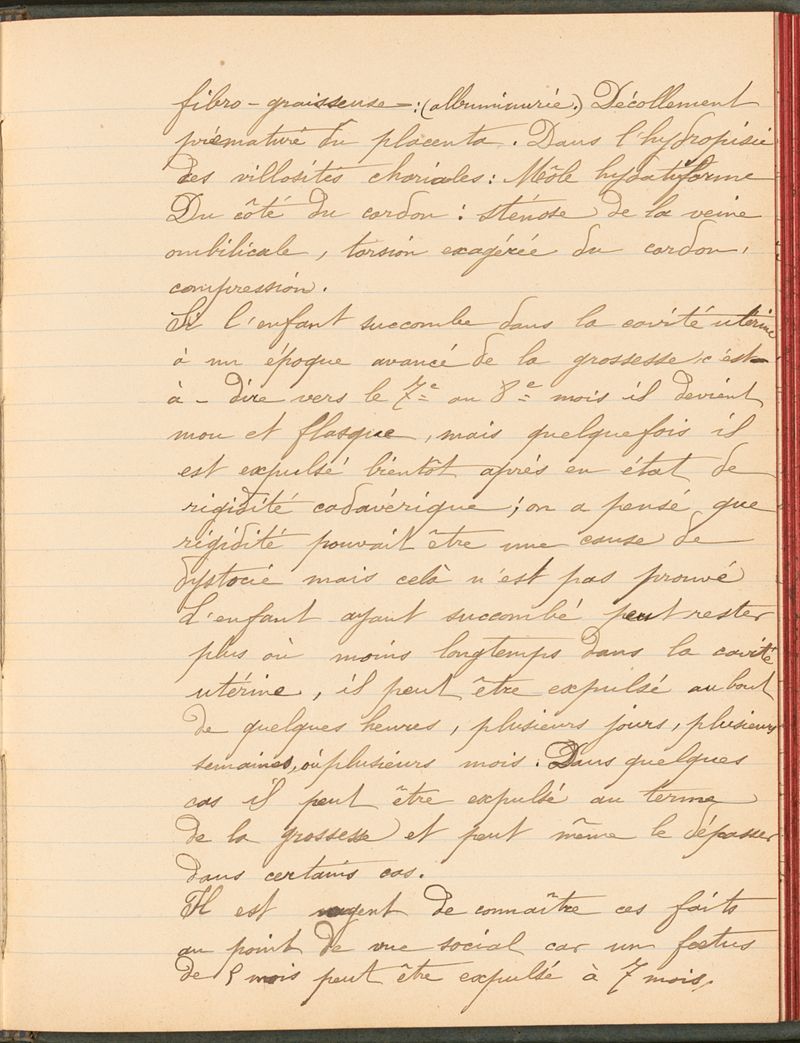 fibro-graisseuse : (albuminurie.) Décollement
prématuré du placenta. Dans l'hydropisie
des villosités choriales : Môle hydatiforme
Du côté du cordon : sténose de la veine
ombilicale, torsion exagérée du cordon,
compression.
Si l'enfant succombe dans la cavité utérine
à un époque avancé de la grossesse c'est-
à-dire vers le 7e ou 8e mois il devient
mou et flasque, mais quelquefois il
est expulsé bientôt après en état de
rigidité cadavérique ; on a pensé que
rigidité pouvait être une cause de
dystocie mais celà n'est pas prouvé
L'enfant ayant succombé peut rester
plus où moins longtemps dans la cavité
utérine, il peut être expulsé au bout
de quelques heures, plusieurs jours, plusieurs
semaines, où plusieurs mois. Dans quelques
cas il peut être expulsé au terme
de la grossesse et peut même le dépasser
dans certains cas.
Il est urgent de connaître ces faits
au point de vue social car un fœtus
de 5 mois peut être expulsé à 7 mois.